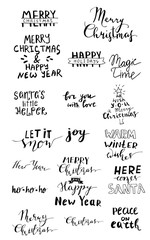 MERRY
CHRISTMAS
Merry
Christmas
MERRY
CHRISTMAS
&
HAPPY
NEW YEAR
HAPPY
HOLIDAYS
Magic
Time
SANTA'S
little
HELPER
for you
with love
wish
YOU
Merry
Christmas
LET IT
snow
joy
WARM
WINTER
wishes
New Year
Merry
Christmas
AND
Happy
New Year
HERE
comes
SANTA
ho-ho-ho
Merry
Christmas
Merry
Christmas
peace
on
earth